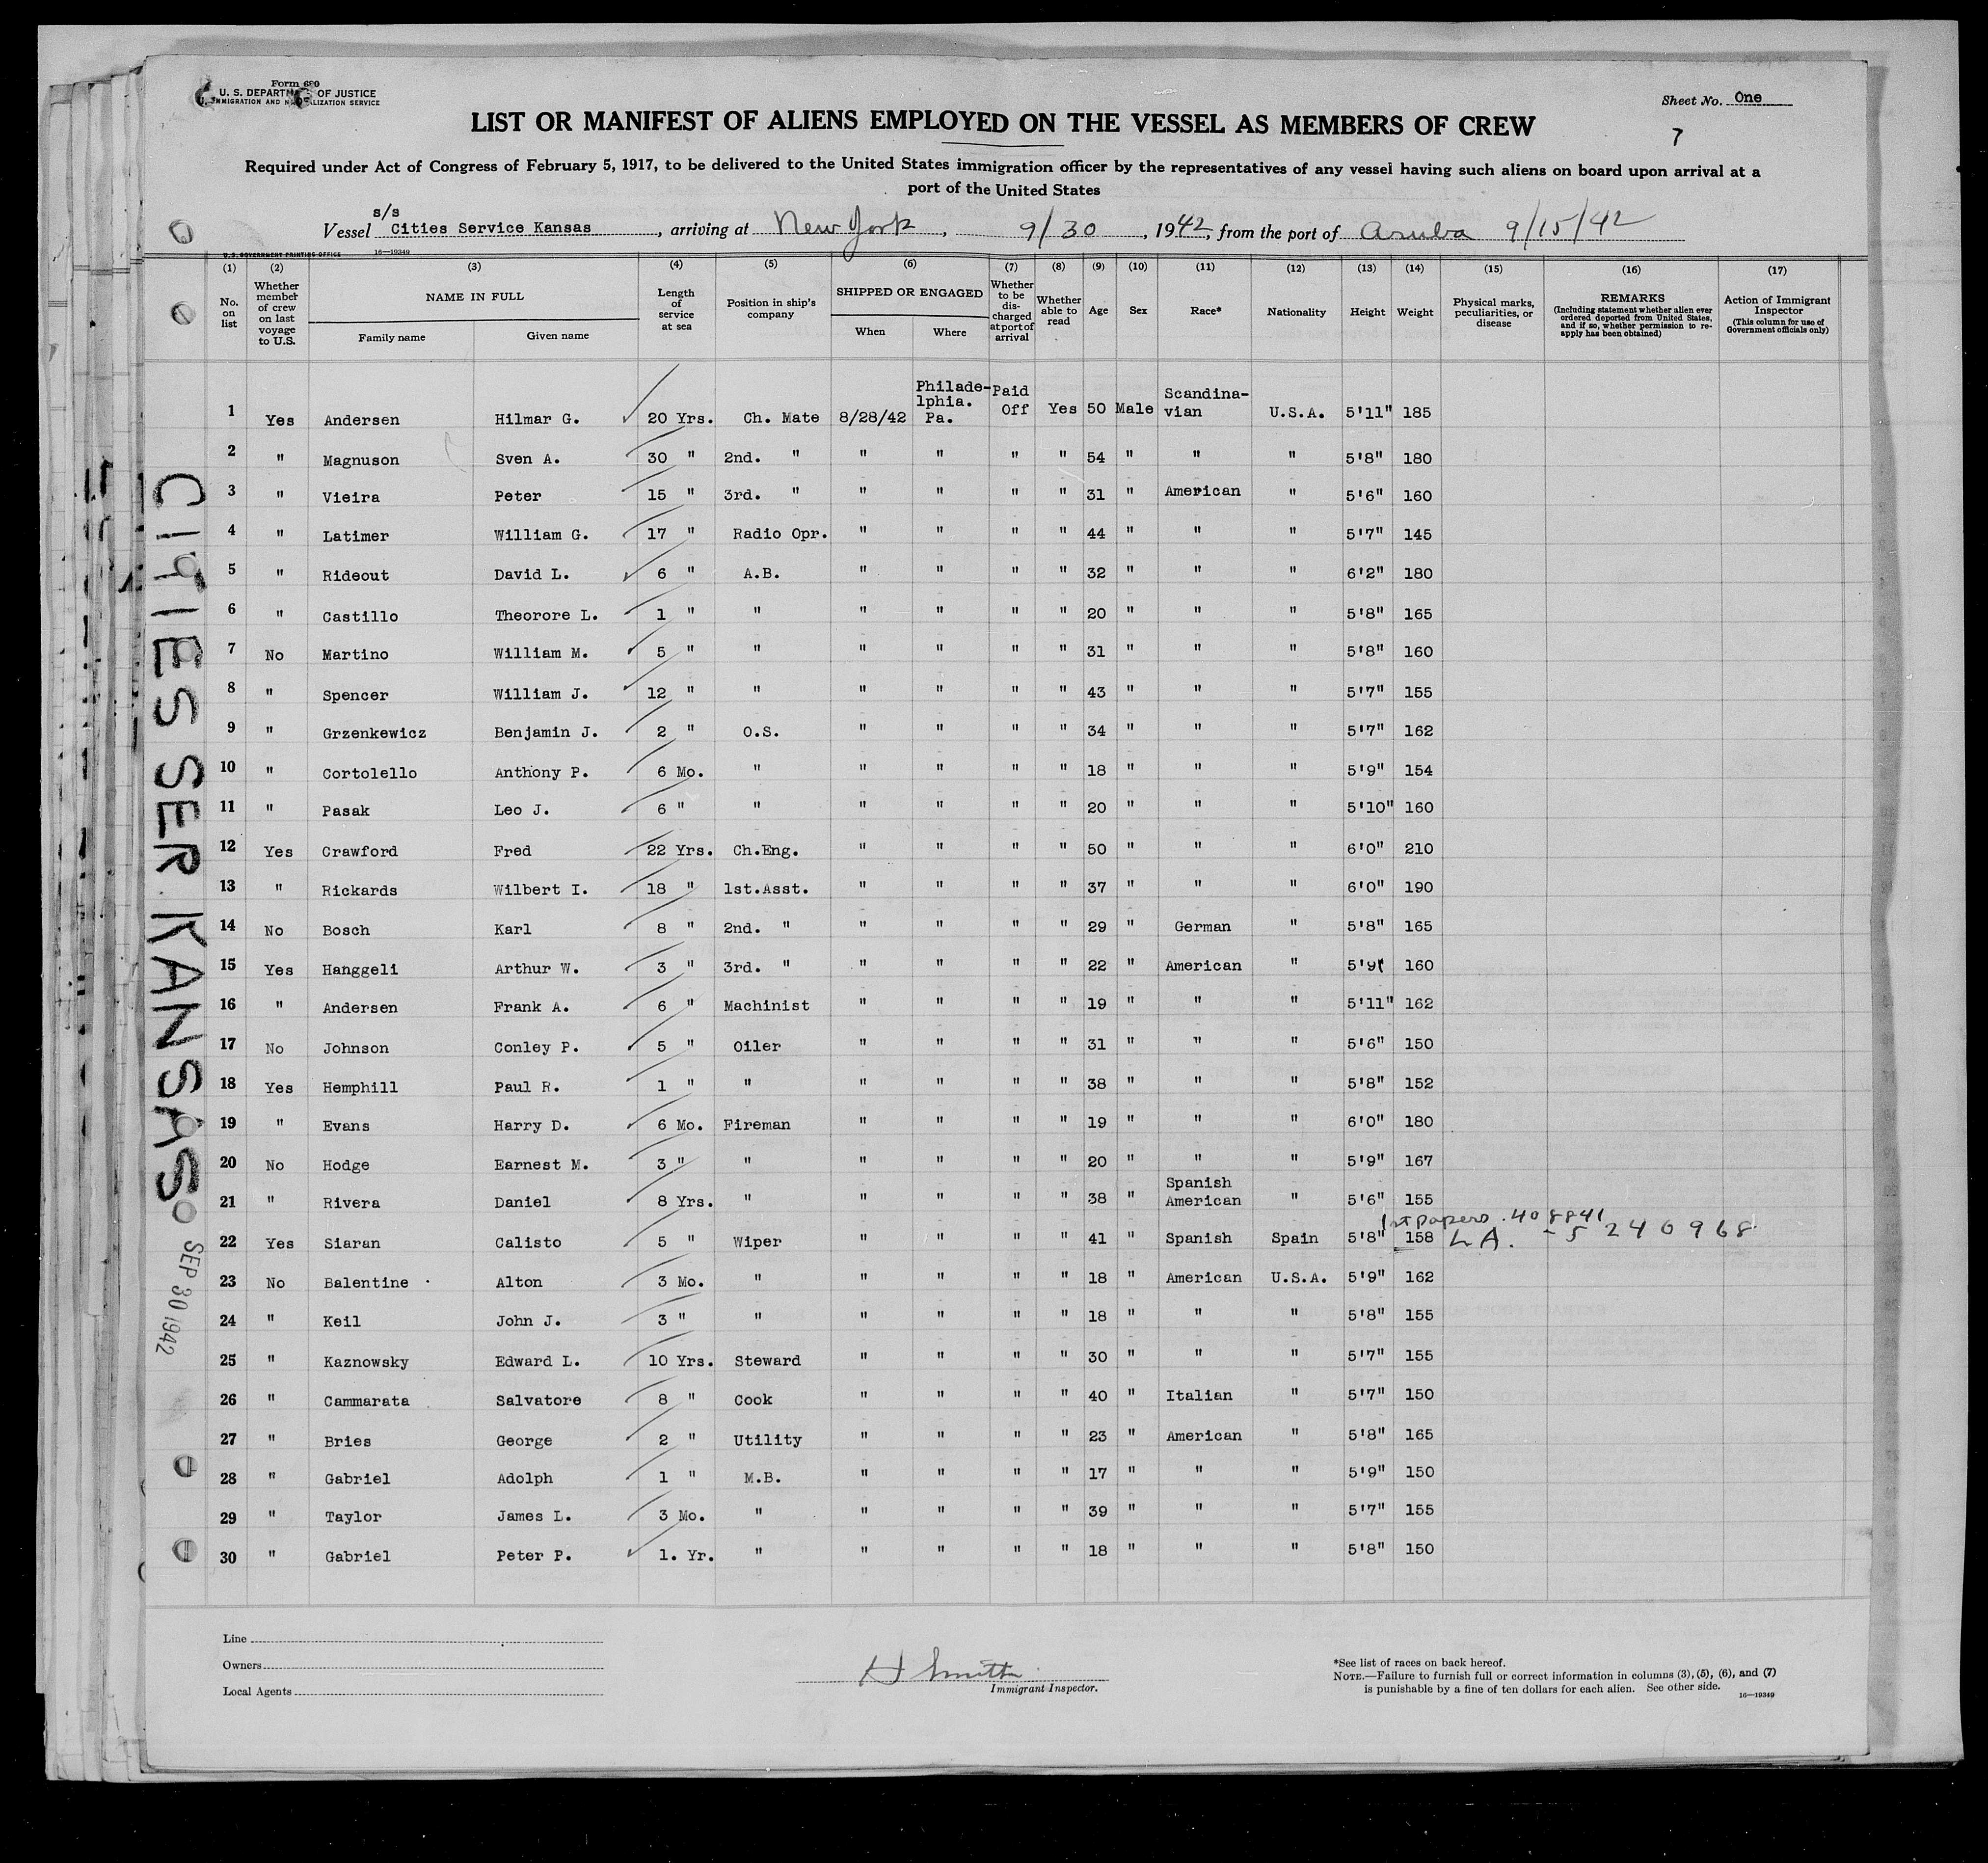 Form 680
U. S. DEPARTMENT OF JUSTICE
IMMIGRATION AND NATURALIZATION SERVICE
Sheet No. One
7
LIST OR MANIFEST OF ALIENS EMPLOYED ON THE VESSEL AS MEMBERS OF CREW
Required under Act of Congress of February 5, 1917, to be delivered to the United States immigration officer by the representatives of any vessel having such aliens on board upon arrival at a
port of the United States
s/s
Vessel Cities Service Kansas, arriving at New York, 9/30, 1942, from the port of Aruba 9/15/42
U.S. GOVERNMENT PRINTING OFFICE 16—19349
(1) (2) (3) (4) (5) (6) (7) (8) (9) (10) (11) (12) (13) (14) (15) (16) (17)
No. on list | Whether member of crew on last voyage to U.S. | NAME IN FULL Family name Given name | Length of service at sea | Position in ship's company | SHIPPED OR ENGAGED When Where | Whether to be discharged at port of arrival | Whether able to read | Age | Sex | Race* | Nationality | Height | Weight | Physical marks, peculiarities, or disease | REMARKS (Including statement whether alien ever ordered deported from United States, and if so, whether permission to re-apply has been obtained) | Action of Immigrant Inspector (This column for use of Government officials only)
1 Yes Andersen Hilmar G. 20 Yrs. Ch. Mate 8/28/42 Philade-lphia. Pa. Paid Off Yes 50 Male Scandina-vian U.S.A. 5'11" 185
2 " Magnuson Sven A. 30 " 2nd. " " " " " 54 " " " 5'8" 180
3 " Vieira Peter 15 " 3rd. " " " " " 31 " American " 5'6" 160
4 " Latimer William G. 17 " Radio Opr. " " " " 44 " " " 5'7" 145
5 " Rideout David L. 6 " A.B. " " " " 32 " " " 6'2" 180
6 " Castillo Theorore L. 1 " " " " " " 20 " " " 5'8" 165
7 No Martino William M. 5 " " " " " " 31 " " " 5'8" 160
8 " Spencer William J. 12 " " " " " " 43 " " " 5'7" 155
9 " Grzenkewicz Benjamin J. 2 " O.S. " " " " 34 " " " 5'7" 162
10 " Cortolello Anthony P. 6 Mo. " " " " " 18 " " " 5'9" 154
11 " Pasak Leo J. 6 " " " " " " 20 " " " 5'10" 160
12 Yes Crawford Fred 22 Yrs. Ch.Eng. " " " " 50 " " " 6'0" 210
13 " Rickards Wilbert I. 18 " 1st.Asst. " " " " 37 " " " 6'0" 190
14 No Bosch Karl 8 " 2nd. " " " " " 29 " German " 5'8" 165
15 Yes Hanggeli Arthur W. 3 " 3rd. " " " " " 22 " American " 5'9" 160
16 " Andersen Frank A. 6 " Machinist " " " " 19 " " " 5'11" 162
17 No Johnson Conley P. 5 " Oiler " " " " 31 " " " 5'6" 150
18 Yes Hemphill Paul R. 1 " " " " " " 38 " " " 5'8" 152
19 " Evans Harry D. 6 Mo. Fireman " " " " 19 " " " 6'0" 180
20 No Hodge Earnest M. 3 " " " " " " 20 " " " 5'9" 167
21 " Rivera Daniel 8 Yrs. " " " " " 38 " Spanish American " 5'6" 155
1st papers. 408841
22 Yes Siaran Calisto 5 " Wiper " " " " 41 " Spanish Spain 5'8" 158 L A. - 5 240968
23 No Balentine Alton 3 Mo. " " " " " 18 " American U.S.A. 5'9" 162
24 " Keil John J. 3 " " " " " " 18 " " " 5'8" 155
25 " Kaznowsky Edward L. 10 Yrs. Steward " " " " 30 " " " 5'7" 155
26 " Cammarata Salvatore 8 " Cook " " " " 40 " Italian " 5'7" 150
27 " Bries George 2 " Utility " " " " 23 " American " 5'8" 165
28 " Gabriel Adolph 1 " M.B. " " " " 17 " " " 5'9" 150
29 " Taylor James L. 3 Mo. " " " " " 39 " " " 5'7" 155
30 " Gabriel Peter P. 1. Yr. " " " " " 18 " " " 5'8" 150
CITIES SER. KANSAS
SEP 30 1942
Line
Owners
Local Agents
H Smith
Immigrant Inspector.
*See list of races on back hereof.
NOTE.—Failure to furnish full or correct information in columns (3), (5), (6), and (7)
is punishable by a fine of ten dollars for each alien. See other side.
16—19349